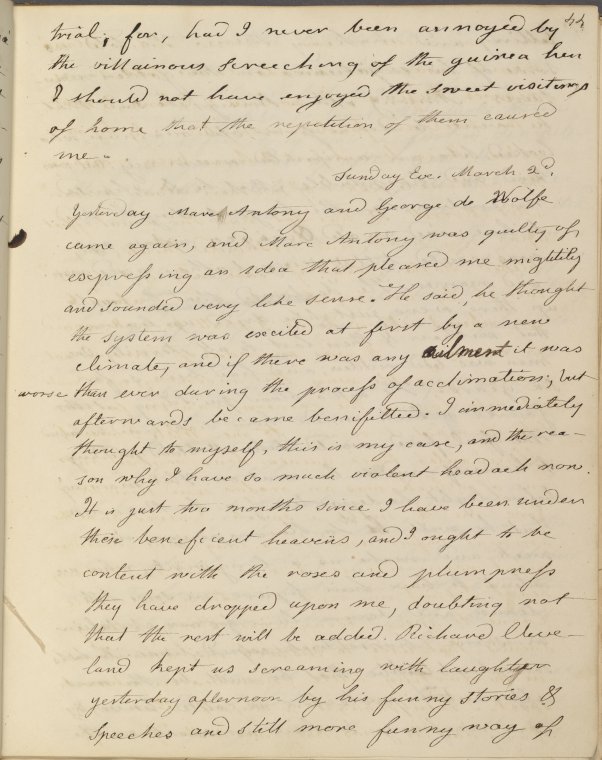 44
trial; for, had I never been annoyed by
the villainous screeching of the guinea hen
I should not have enjoyed the sweet visitings
of home that the repitition of them caused
me.
Sunday Eve. March 2d.
Yesterday Marc Antony and George de Wolfe
came again, and Marc Antony was guilty of
expressing an idea that pleased me mightily
and sounded very like sense. He said, he thought
the system was excited at first by a new
climate, and if there was any ailment it was
worse than ever during the process of acclimation; but
afterwards became benifitted. I immediately
thought to myself, this is my case, and the rea-
son why I have so much violent headach now.
It is just two months since I have been under
these beneficent heavens, and I ought to be
content with the roses and plumpness
they have dropped upon me, doubting not
that the rest will be added. Richard Cleve-
land kept us screaming with laughter
yesterday afternoon by his funny stories &
speeches and still more funny way of